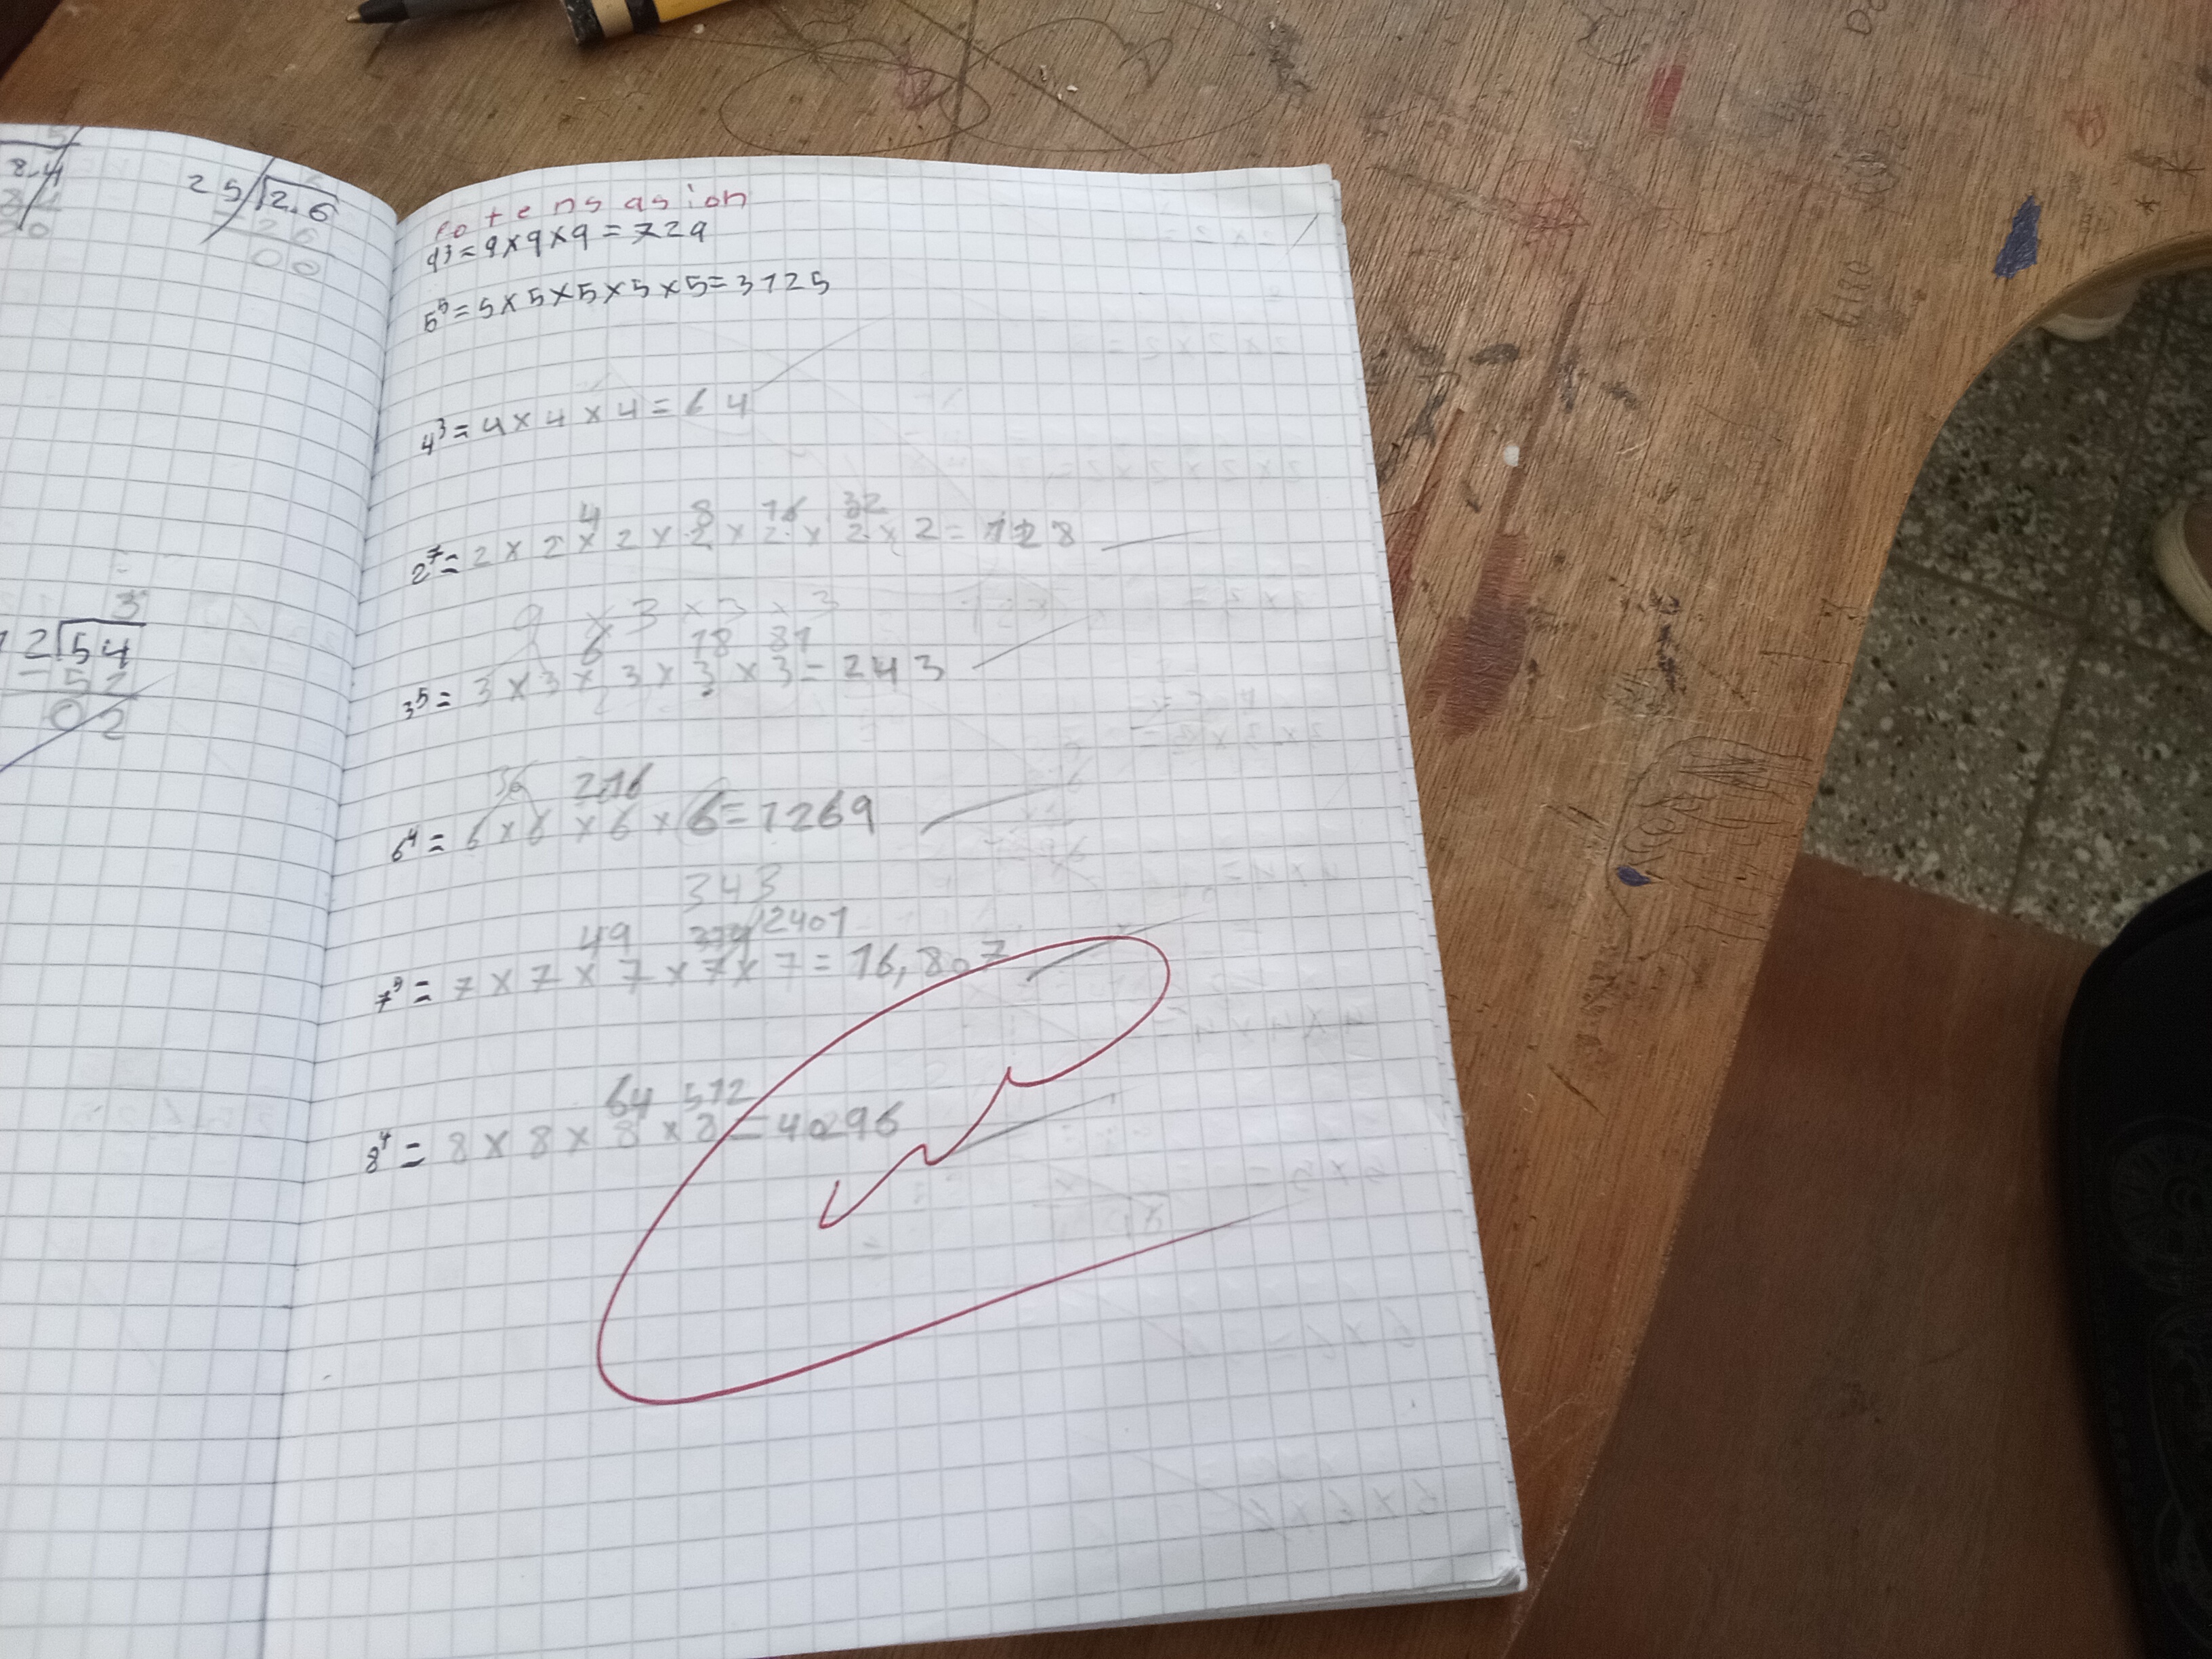 8.4
25 2.6
26
00
3
12 54
- 51
02
Potensasion
9³ = 9 x 9 x 9 = 729
5⁵ = 5 x 5 x 5 x 5 x 5 = 3125
4³ = 4 x 4 x 4 = 64
4 8 16 32
2⁷ = 2 x 2 x 2 x 2 x 2 x 2 x 2 = 128
9 x 3 x 3 x 3
6 18 81
3⁵ = 3 x 3 x 3 x 3 x 3 = 243
36 216
6⁴ = 6 x 6 x 6 x 6 = 1269
343
49 2401
7⁵ = 7 x 7 x 7 x 7 x 7 = 16,807
64 512
8⁴ = 8 x 8 x 8 x 8 = 4096